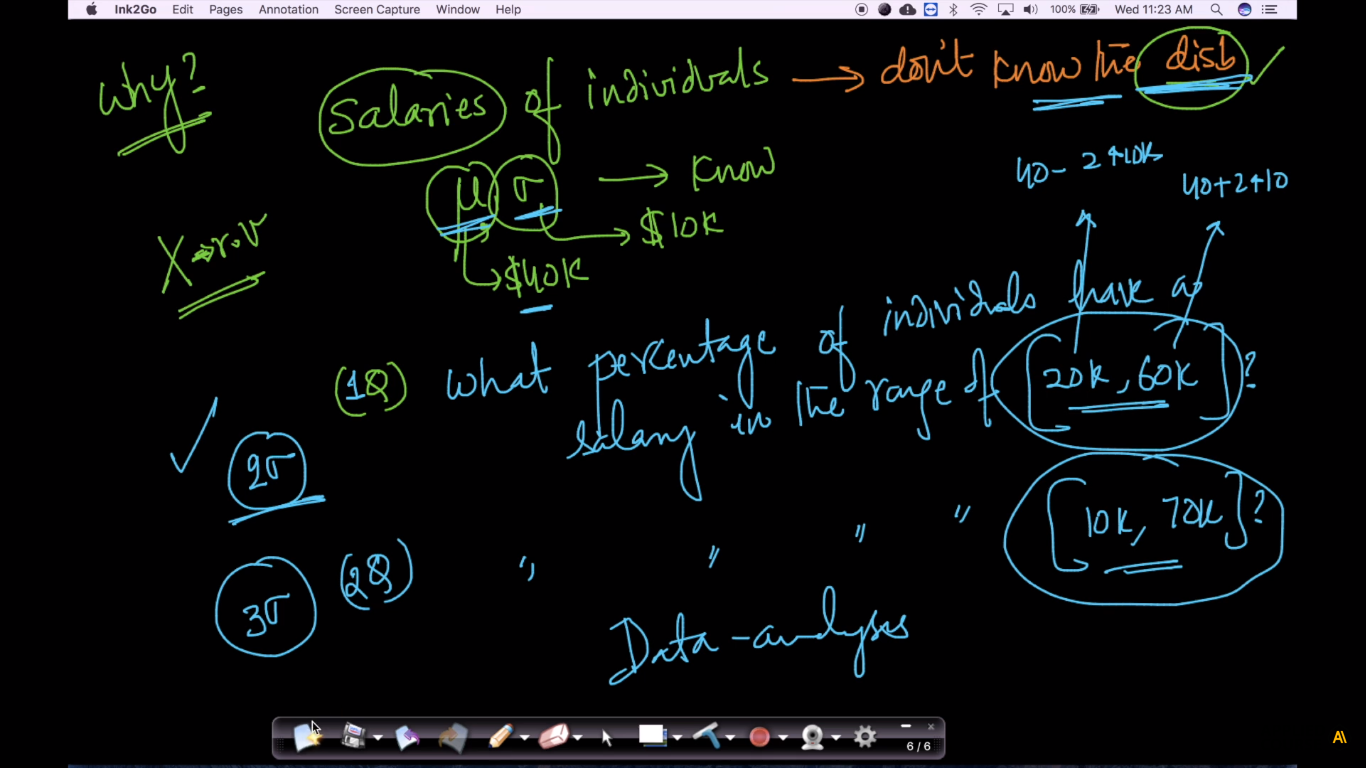 Ink2Go Edit Pages Annotation Screen Capture Window Help 100% Wed 11:23 AM
why? Salaries of individuals → don't know the disb
μ σ → know
40 - 2*10k
40+2*10
X → r.v
$10K
$40K
(1Q) what percentage of individuals have a
salary in the range of [20k, 60k]?
2σ
(2Q) " " " " [10k, 70k]?
3σ
Data-analyses
6 / 6